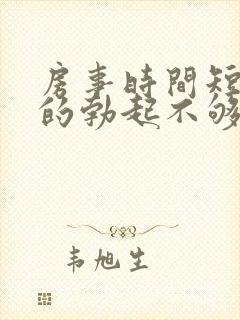 房事時間短
的勃起不够
韦旭生